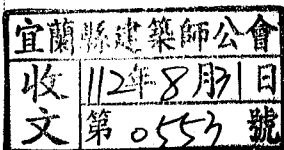 宜蘭縣建築師公會
收文 112年8月31日
第0553號